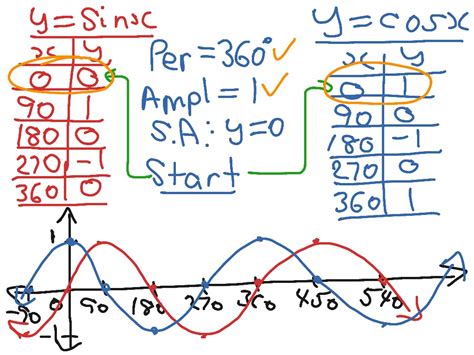 y=Sinx
x y
0 0
90 1
180 0
270 -1
360 0
Per=360° ✓
Ampl=1 ✓
S.A: y=0
Start
y=cosx
x y
0 1
90 0
180 -1
270 0
360 1
1
-90 0 90 180 270 360 450 540
-1